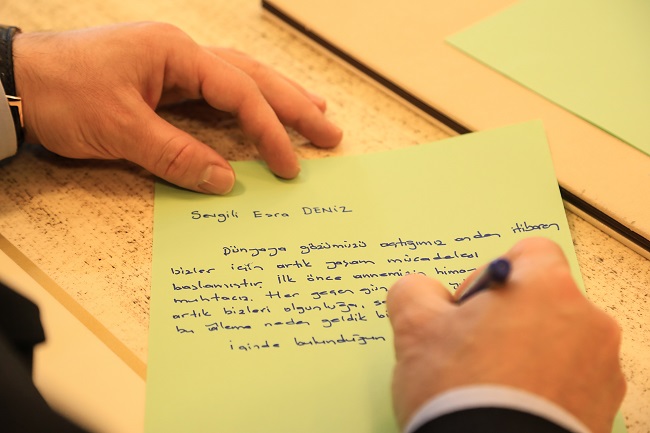 Sevgili Esra DENİZ
Dünyaya gözümüzü açtığımız andan itibaren
bizler için artık yaşam mücadelesi
başlamıştır. İlk önce annemizin
muhtacız. Her geçen gün
artık bizleri olgunluğa,
bu âleme neden geldik
içinde bulunduğun